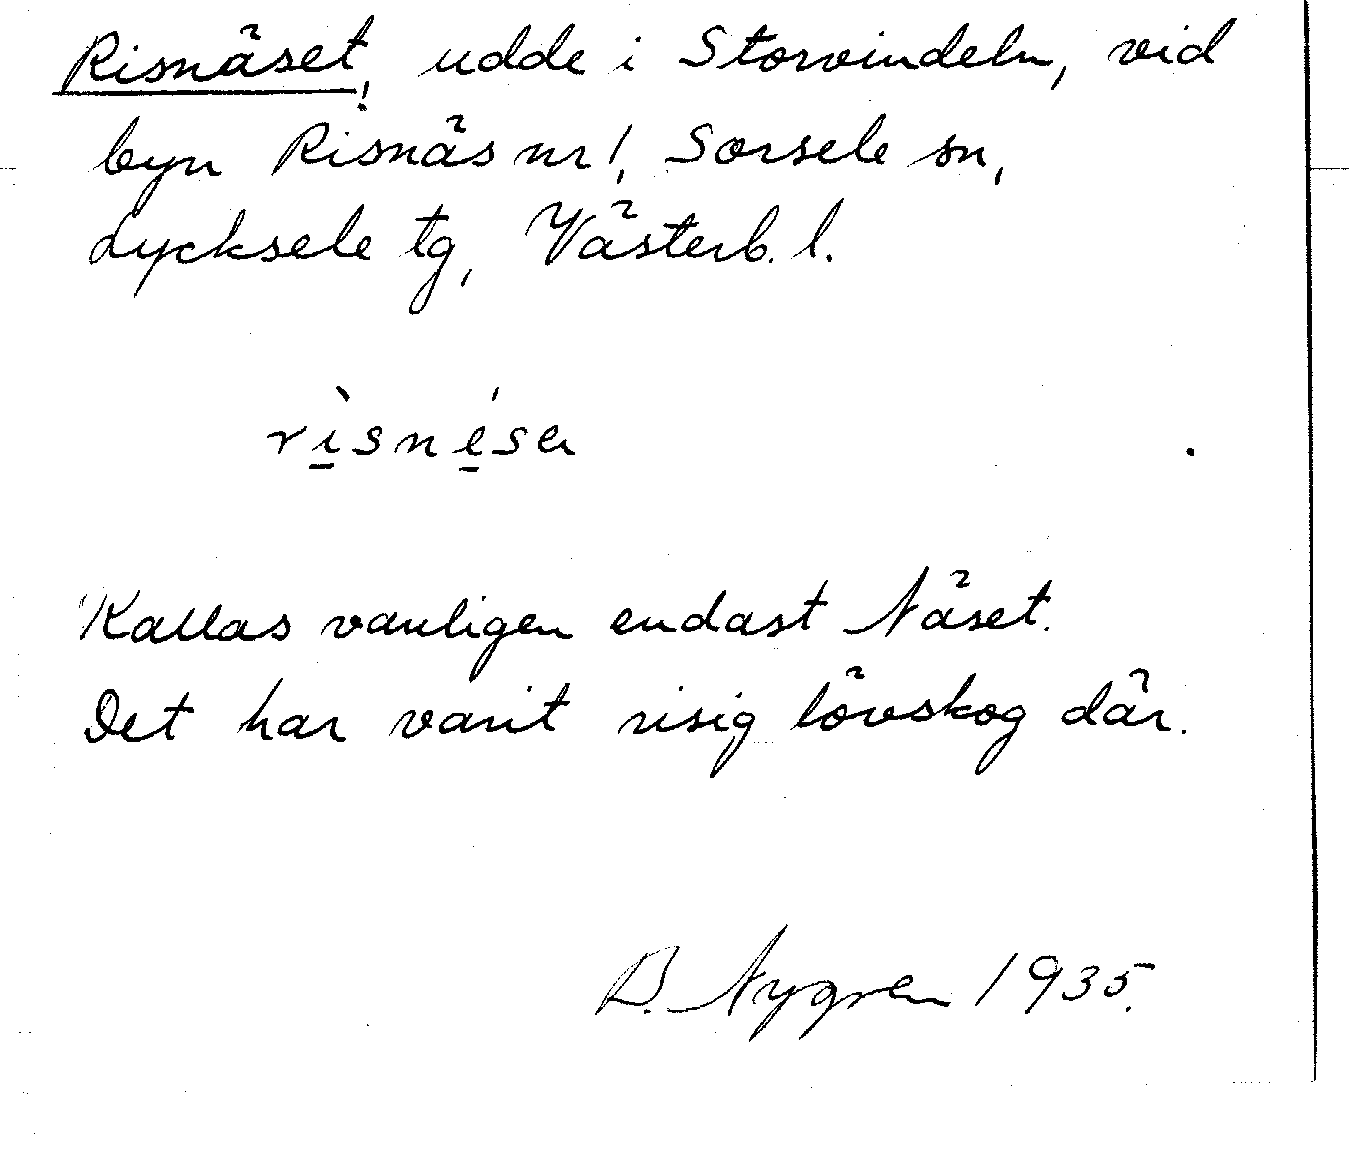 Risnäset, udde i Storvindeln, vid
byn Risnäs nr 1, Sorsele sn,
Lycksele tg, Västerb. l.
Kallas vanligen endast Näset.
Det har varit risig lövskog där.
B. Nygren 1935.